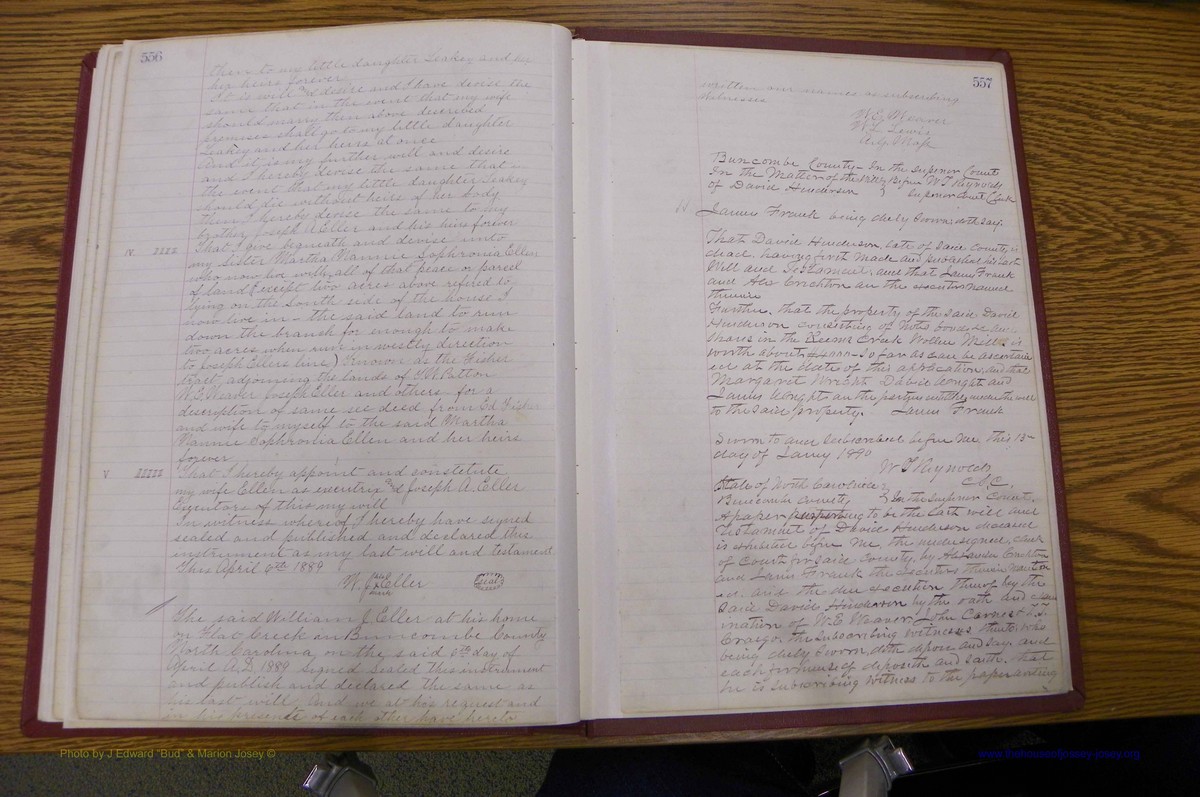 556
then to my little daughter Leakey and
her heirs forever
It is will and desire and I have devise the
same that in the event that my wife
should marry then above described
premises shall go to my little daughter
Leakey and her heirs at once
And it is my further will and desire
and I hereby devise the same that in
the event that my little daughter Leakey
should die without heirs of her body
then I hereby devise the same to my
brother Joseph A Eller and his heirs forever
IV. IIII That I give bequeath and devise unto
my sister Martha Nannie Sophronia Ellen
who now live with, all of that peace or parcel
of land (except two acres above refired to
lying on the South side of the house I
now live in - the said land to run
down the branch far enough to make
two acres when run in westly direction
to Joseph Ellers line) Known as the Fisher
tract, adjoining the lands of Patton
Weaver Joseph Eller and others. for a
description of same see deed from Ed Fisher
and wife to myself to the said Martha
Nannie Sophronia Ellen and her heirs
forever
V. IIIII That I hereby appoint and constetute
my wife Ellen as executrix and Joseph A. Eller
Executors of this my will
In witness whereof I hereby have signed
sealed and published and declared this
instrument as my last will and testament
This April 9th 1889
W. J. Eller (Seal)
The said William J Eller at his home
on Flat Creek in Buncombe County
North Carolina, on the said 9th day of
April A.D. 1889 signed sealed this instrument
and publish and declared the same as
his last will. And we at his request and
in his presence of each other have hereto
557
written our names as subscribing
witnesses
W. E. Weaver
Lewis
Buncombe County - In the Superior Court
In the Matter of the Will Before W T Reynolds
of David Henderson Superior Court Clerk
James Frank being duly sworn doth say.
That David Henderson, late of said County, is
dead, having first made and published his Last
Will and Testament, and that James Frank
and Alex Crichton are the executors named
therein
Further, that the property of the said David
Henderson consisting of Notes bonds &c
shares in the Reems Creek Wollen Mills is
worth about so far as can be ascertain
ed at the date of this application, and that
Margaret Wright David Wright and
James Wright are the parties entitled under the will
to the said property. James Frank
Sworn to and subscribed before me this 13
day of Jany 1890
W T Reynolds
C.S.C.
State of North Carolina
Buncombe County } In the Superior Court.
A paper purporting to be the last will and
Testament of David Henderson deceased
is exhibited before me, the undersigned, clerk
of Court for said County, by Crichton
and James Frank the Executors therein mention
ed, and the due execution thereof by the
said David Henderson by the oath and exam
ination of W.E Weaver, John Carnes & T.J.
the subscribing witnesses thereto; who
being duly sworn, doth depose and say, and
each for himself deposeth and saith, that
he is subscribing witness to the paper writing
Photo by J Edward "Bud" & Marion Josey ©
www.thehouseofjossey-josey.org